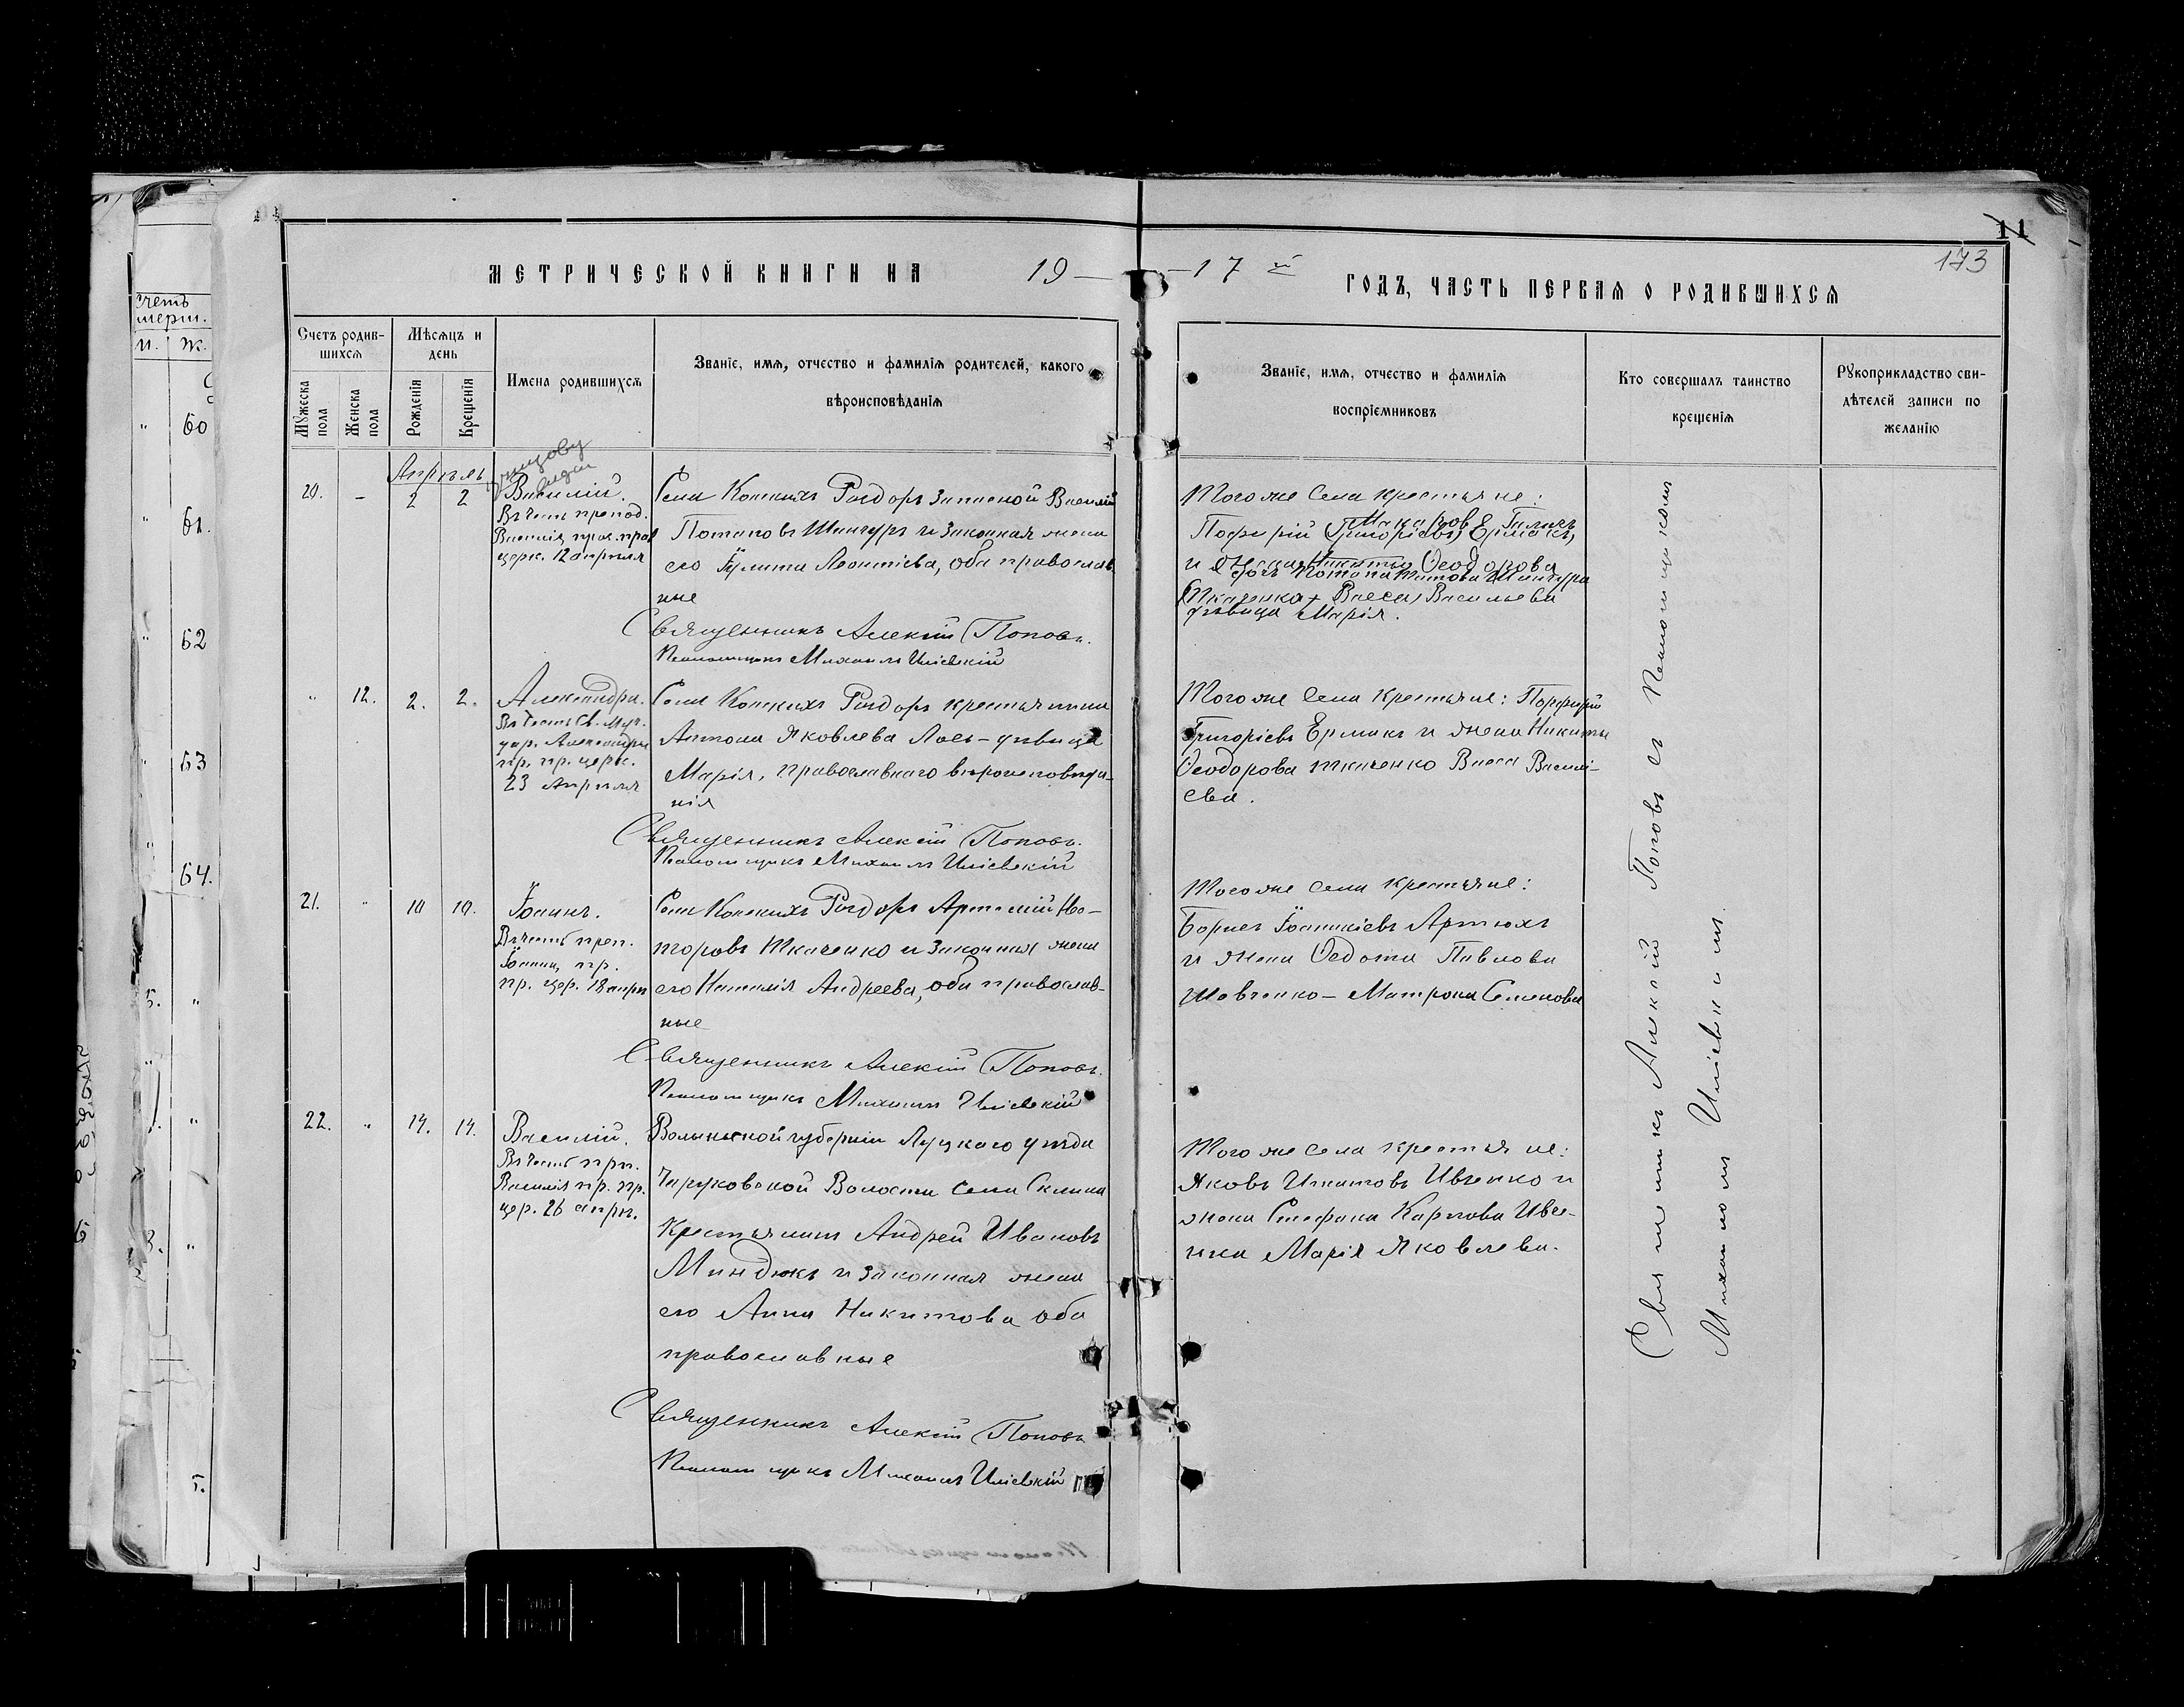 МЕТРИЧЕСКОЙ КНИГИ НА 19—
—17 й ГОДЪ, ЧАСТЬ ПЕРВАЯ О РОДИВШИХСЯ
11
173
Счетъ родив-
шихся
Мужеска
пола
Женска
пола
Мѣсяцъ и
день
Рожденія
Крещенія
Имена родившихся
Званіе, имя, отчество и фамилія родителей, какого
вѣроисповѣданія
Званіе, имя, отчество и фамилія
воспріемниковъ
Кто совершалъ таинство
крещенія
Рукоприкладство сви-
дѣтелей записи по
желанію
Апрѣль
20. – 2 2
Василій.
Въ честь препод.
Василія, праз. прав.
церк. 12 апрѣля
Села Конскихъ Роздоръ запасной Василій
Потаповъ Шингуръ и законная жена
его Іулита Леонтіева, оба православ-
ные
Священникъ Алексій Поповъ.
Псаломщикъ Михаилъ Иліевскій
Того же села крестьяне:
Макаровъ Галихъ
Порфирій Григоріевъ Ермакъ,
и жена Никиты Ѳеодорова
дочь Потапа Шингура
Ткаченко Васса Васильева
дѣвица Марія.
" 12. 2. 2.
Александра.
Въ честь св. муч.
цар. Александры
пр. пр. церк.
23 Апрѣля
Села Конскихъ Роздоръ крестьянина
Антона Яковлева Лось – дѣвица
Марія, православнаго вѣроисповѣда-
нія
Священникъ Алексій Поповъ.
Псаломщикъ Михаилъ Иліевскій
Того же села крестьяне: Порфирій
Григоріевъ Ермакъ и жена Никиты
Ѳеодорова Ткаченко Васса Василі-
ева.
21. " 10 10.
Іоаннъ.
Въ честь преп.
Іоанна, пр.
пр. цер. 18 апрѣ
Села Конскихъ Роздоръ Артемій
Ткаченко и законная жена
его Наталія Андреева, оба православ-
ные
Священникъ Алексій Поповъ.
Псаломщикъ Михаилъ Иліевскій
Того же села крестьяне:
Борисъ Іоанникіевъ Артюхъ
и жена Ѳедота Павлова
Шевченко – Матрона Семенова
22. " 14. 14.
Василій.
Въ честь прп.
Василія пр. пр.
цер. 26 апрѣ.
Волынской губерніи Луцкаго уѣзда
Чаруковской Волости села Склина
Крестьянинъ Андрей Ивановъ
Миндюкъ и законная жена
его Анна Никитова оба
православные
Священникъ Алексій Поповъ
Псаломщикъ Михаилъ Иліевскій
Того же села крестьяне:
Яковъ Игнатовъ Ивченко и
жена Стефана Карпова Ивче-
нка Марія Яковлева.
Священникъ Алексій Поповъ съ Псаломщикомъ
Михаиломъ Иліевскимъ.
счетъ
умерш.
м. Ж.
60
61.
62
63
64.
5.